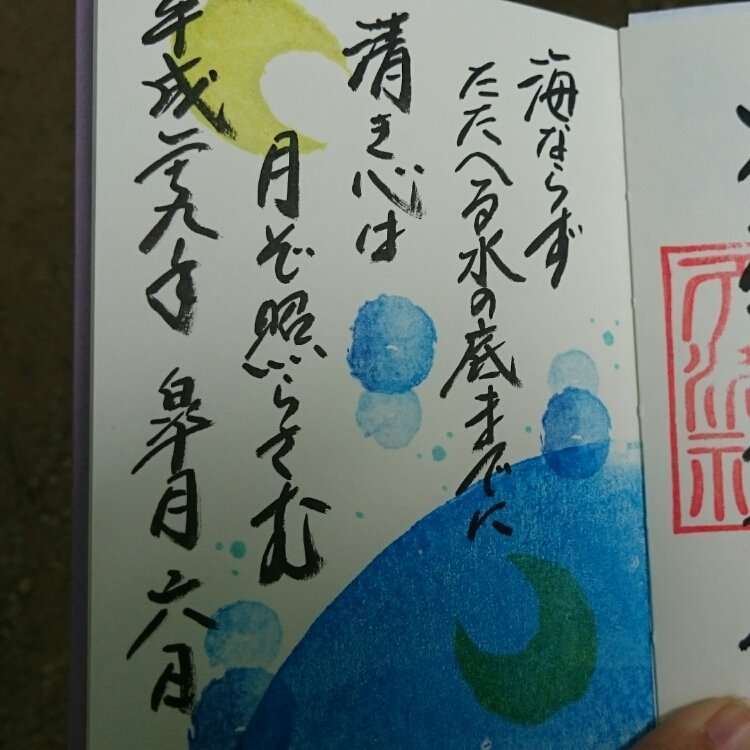 海ならず
たたへる水の底までに
清き心は
月ぞ照らさむ
平成二十九年 皐月 六日